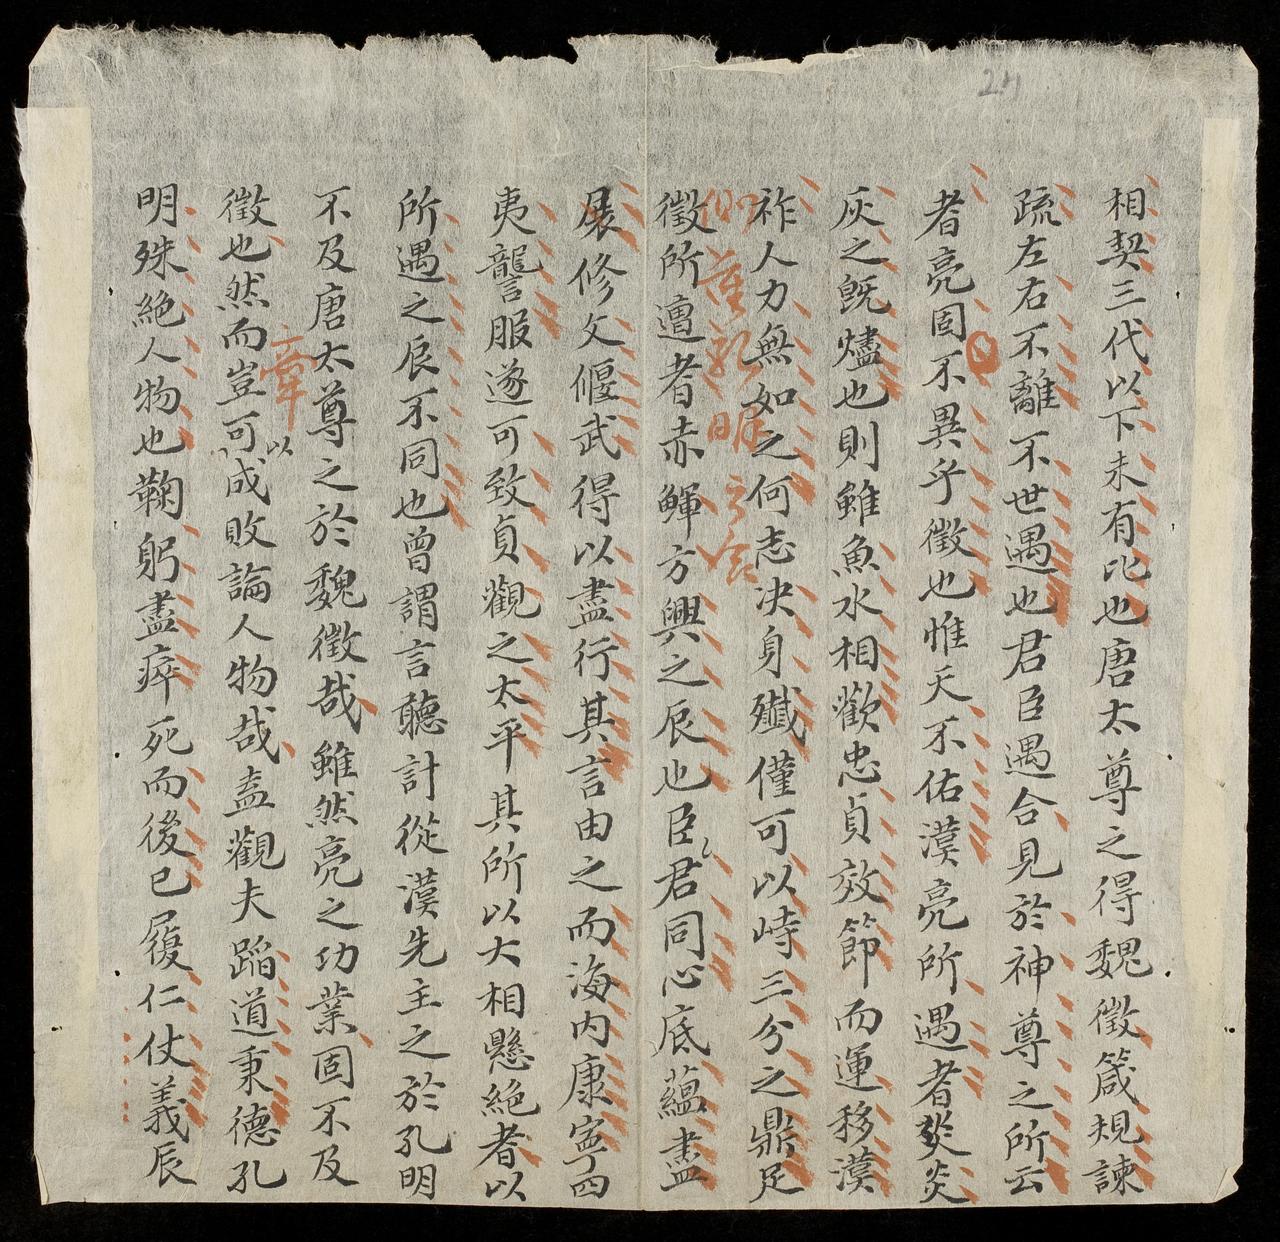 相契三代以下未有比也唐太尊之得魏徵箴規諫
疏左右不離不世遇也君臣遇合見於神尊之所云
者亮固不異乎徵也惟天不佑漢亮所遇者炎
灰之既燼也則雖魚水相歡忠貞效節而運移漢
祚人力無如之何志決身殲僅可以峙三分之鼎足
徵所遭者赤鯶方興之辰也臣君同心底蘊盡
展修文偃武得以盡行其言由之而海内康寧四
夷讋服遂可致貞觀之太平其所以大相懸絕者以
所遇之辰不同也曾謂言聽計從漢先主之於孔明
不及唐太尊之於魏徵哉雖然亮之功業固不及
徵也然而豈可以成敗論人物哉盍觀夫蹈道秉德孔
明殊絕人物也鞠躬盡瘁死而後已履仁仗義辰
章